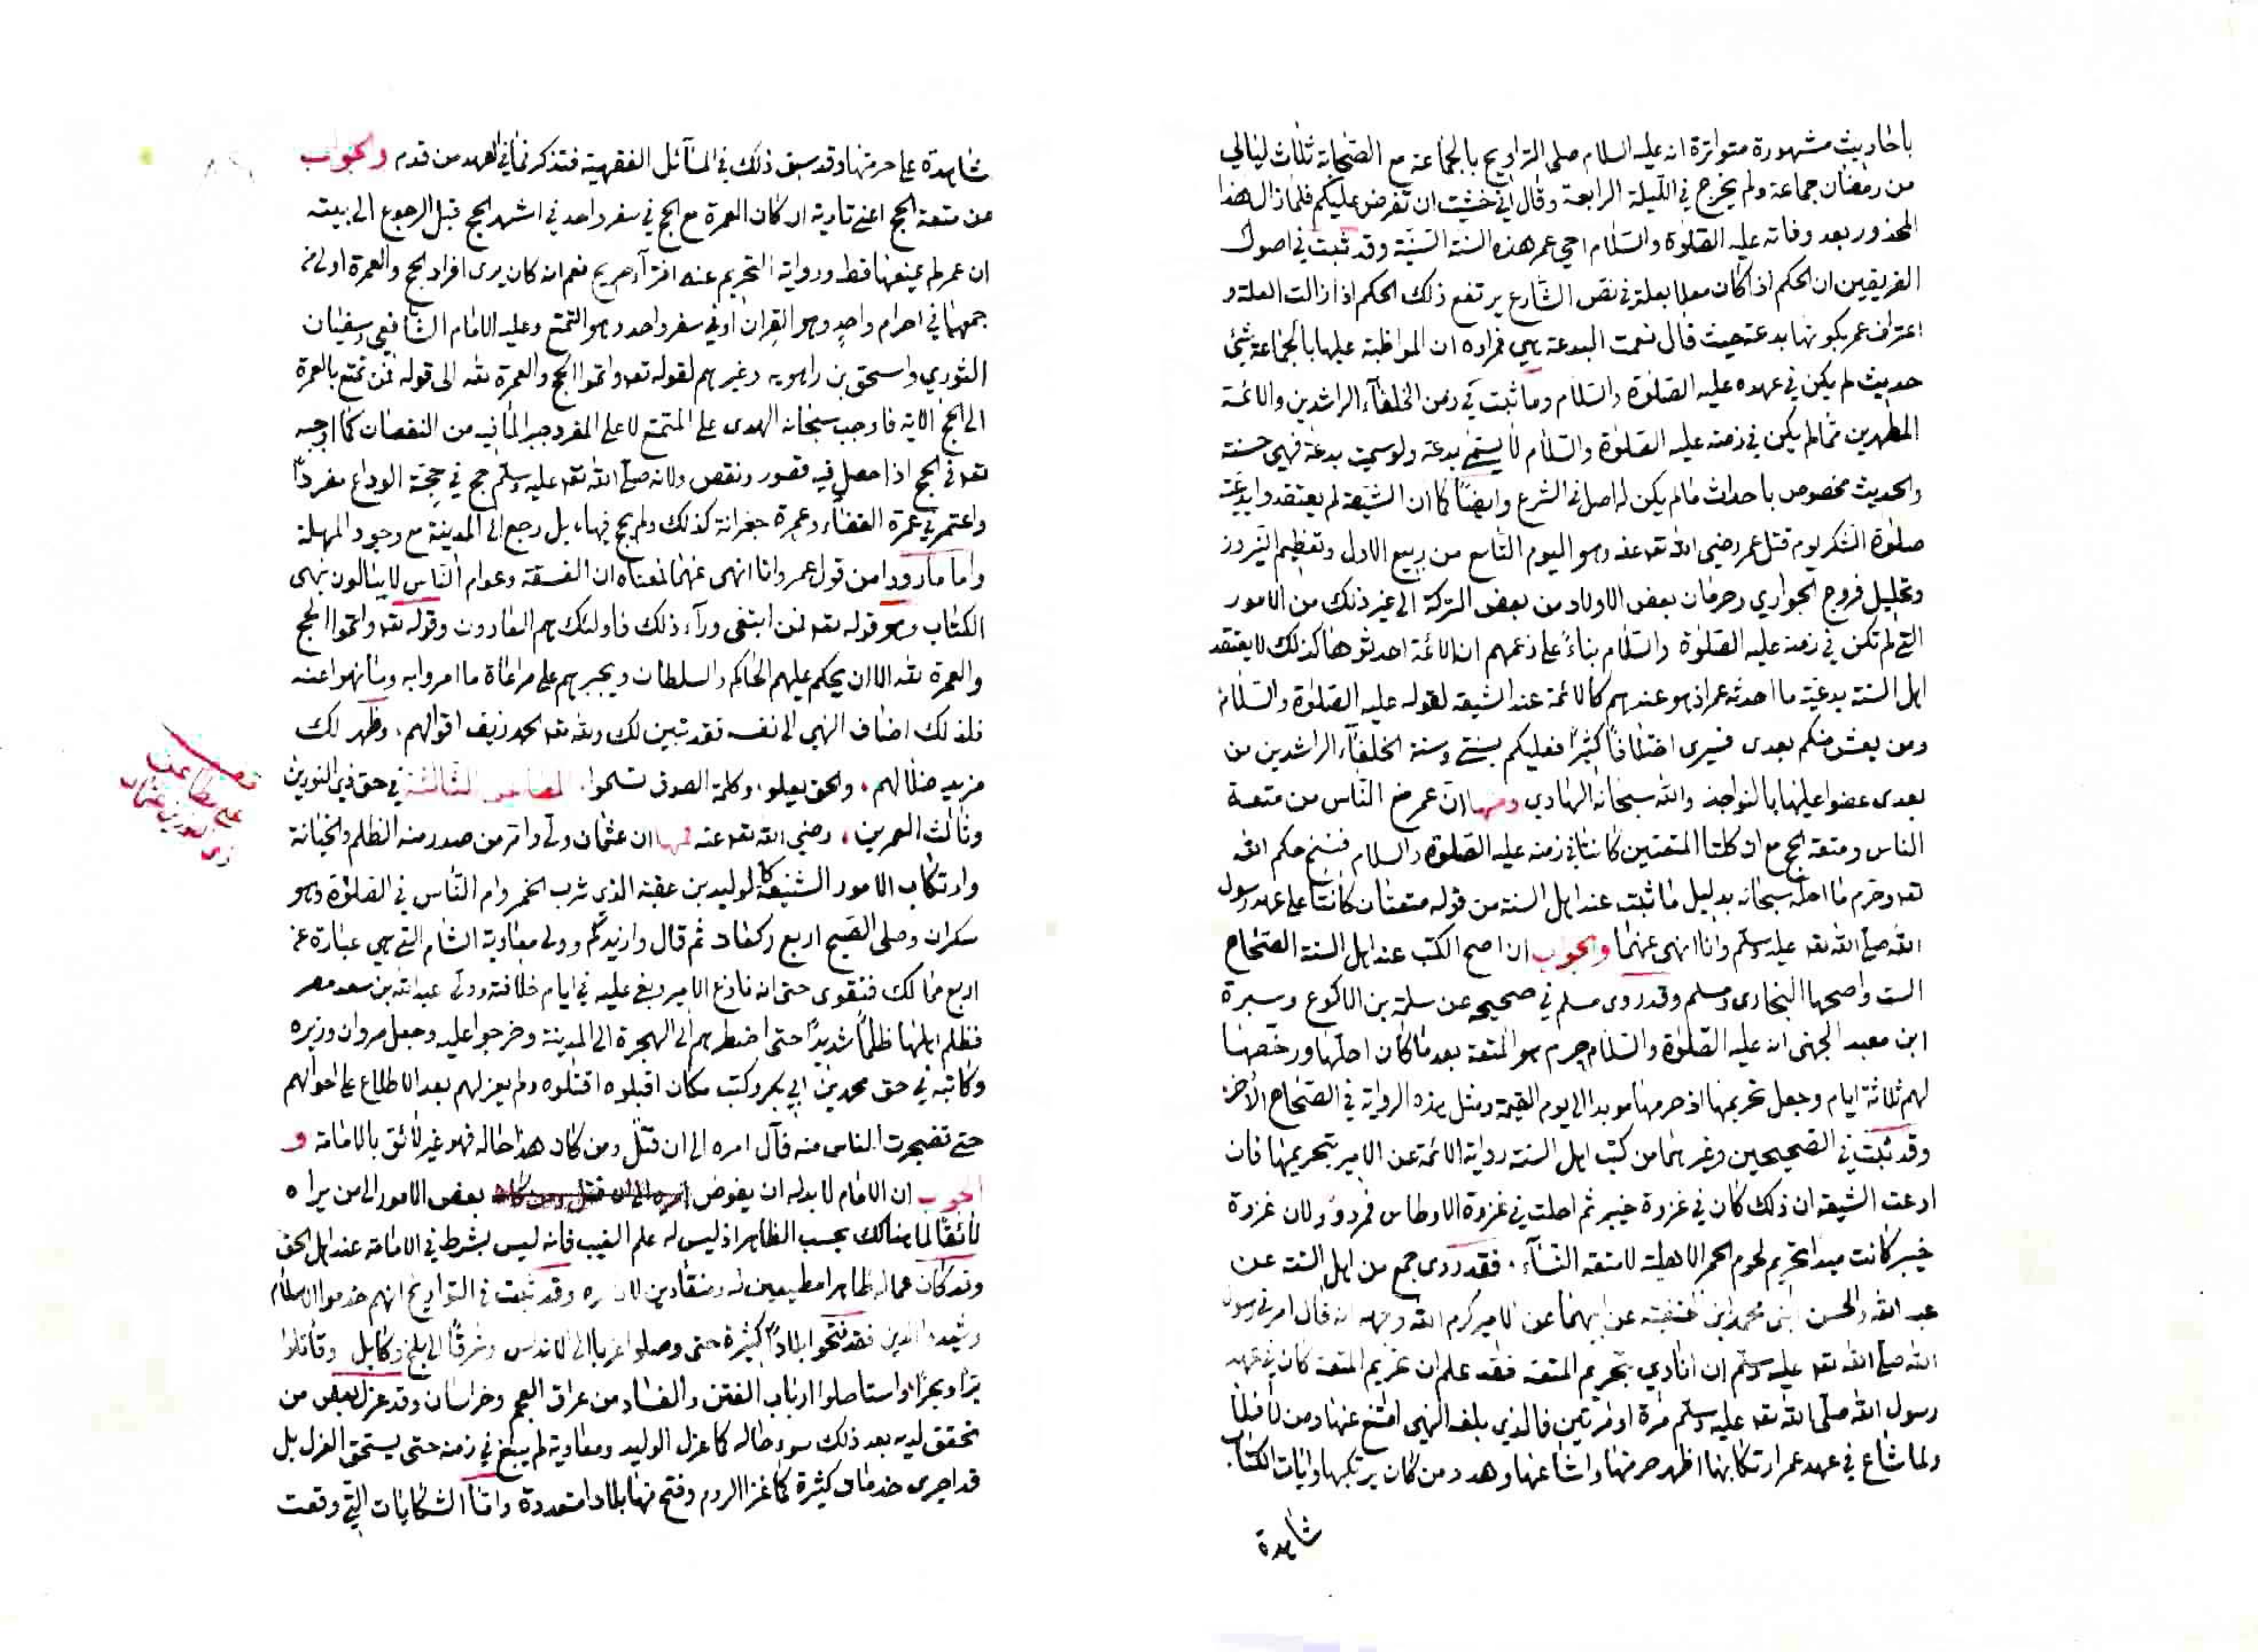 باحاديث مشهورة متواترة انه عليه السلام صلى التراويح بالجماعة مع الصحابة ثلاث ليالي
من رمضان جماعة ولم يخرج في الليلة الرابعة وقال اني خشيت ان تفرض عليكم فلما زال هذا
المحذور بعد وفاته عليه الصلوة والسلام احيى عمر هذه السنة السنية وقد ثبت في اصول
الفريقين ان الحكم اذا كان معللا بعلة في نص الشارع يرتفع ذلك الحكم اذا زالت العلة و
اعتراف عمر بكونها بدعة حيث قال نعمت البدعة هي فمراده ان المواظبة عليها بالجماعة شئ
حديث لم يكن في عهده عليه الصلوة والسلام وما ثبت في زمن الخلفاء الراشدين والائمة
المطهرين مما لم يكن في زمنه عليه الصلوة والسلام لا يسمى بدعة ولو سميت بدعة فهي حسنة
والحديث مخصوص باحداث ما لم يكن له اصل في الشرع وايضاً كما ان الشيعة لم يعتقدوا بدعية
صلوة الشكر يوم قتل عمر رضي الله تعه عنه وهو اليوم التاسع من ربيع الاول وتعظيم النيروز
وتحليل فروج الجواري وحرمان بعض الاولاد من بعض التركة الى غير ذلك من الامور
التي لم تكن في زمنه عليه الصلوة والسلام بناءً على زعمهم ان الائمة احدثوها كذلك لا يعتقد
اهل السنة بدعية ما احدثه عمر اذ هو عندهم كالائمة عند الشيعة لقوله عليه الصلوة والسلام
ومن يعش منكم بعدى فسيرى اختلافاً كثيراً فعليكم بسنتي وسنة الخلفاء الراشدين من
بعدى عضوا عليها بالنواجذ والله سبحانه الهادي ومنها ان عمر منع الناس من متعة
الناس ومتعة الحج مع ان كلتا المتعتين كانتا في زمنه عليه الصلوة والسلام فنسخ حكم الله
تعه وحرم ما احله سبحانه بدليل ما ثبت عند اهل السنة من قوله متعتان كانتا على عهد رسول
الله صلى الله تعه عليه وسلم وانا انهى عنهما والجواب ان اصح الكتب عند اهل السنة الصحاح
الست واصحها البخارى ومسلم وقد روى مسلم في صحيحه عن سلمة بن الاكوع وسبرة
ابن معبد الجهنى انه عليه الصلوة والسلام حرم هو المتعة بعد ما كان احلها ورخصها
لهم ثلاثة ايام وجعل تحريمها اذ حرمها موبدا الى يوم القيمة ومثل هذه الرواية في الصحاح الأخر
وقد ثبت في الصحيحين وغيرهما من كتب اهل السنة رواية الائمة عن الامير بتحريمها فان
ادعت الشيعة ان ذلك كان في غزوة خيبر ثم احلت في غزوة الاوطاس فمردود لان غزوة
خيبر كانت مبدا تحريم لحوم الحمر الاهلية لا متعة النساء . فقد روى جمع من اهل السنة عن
عبد الله والحسن ابنى محمد ابن الحنفية عن ابيهما عن الامير كرم الله وجهه انه قال امرني رسول
الله صلى الله تعه عليه وسلم ان انادي بتحريم المتعة فقد علم ان تحريم المتعة كان في عهد
رسول الله صلى الله تعه عليه وسلم مرة او مرتين فالذي بلغه النهي امتنع عنها ومن لا فلا
ولما شاع في عهد عمر ارتكابها اظهر حرمتها واشاعها وهدد من كان يرتكبها وايات الكتاب
شاهدة
شاهدة على حرمتها وقد سبق ذلك في المسائل الفقهية فتذكر فما في العهد من قدم والجواب
عن متعة الحج اعنى تادية اركان العمرة مع الحج في سفر واحد في اشهر الحج قبل الرجوع الى بيته
ان عمر لم يمنعها قط ورواية التحريم عنه افتراء صريح نعم انه كان يرى افراد الحج والعمرة اولى من
جمعهما في احرام واحد وهو القران او في سفر واحد وهو التمتع وعليه الامام الشافعي وسفيان
الثوري واسحق بن راهويه وغيرهم لقوله تعه واتموا الحج والعمرة لله الى قوله فمن تمتع بالعمرة
الى الحج الاية فاوجب سبحانه الهدى على المتمتع لا على المفرد جبرا لما فيه من النقصان كما اوجبه
تعه في الحج اذا حصل فيه قصور ونقص ولانه صلى الله تعه عليه وسلم حج في حجة الوداع مفرداً
واعتمر في عمرة القضاء وعمرة جعرانة كذلك ولم يحج فيها بل رجع الى المدينة مع وجود المهلة
واما ما رووا من قول عمر وانا انهى عنهما فمعناه ان الفسقة وعوام الناس لا يبالون بنهى
الكتاب وهو قوله تعه فمن ابتغى وراء ذلك فاولئك هم العادون وقوله تعه واتموا الحج
والعمرة لله الا ان يحكم عليهم الحاكم والسلطان ويجبرهم على مراعاة ما امروا به وما نهوا عنه
فلذلك اضاف النهي الى نفسه فقد تبين لك ولله تعه الحمد زيف اقوالهم، وظهر لك
مزيد ضلالهم، والحق يعلو، وكلمة الصدق تسموا. المطاعن الثالثة في حق ذي النورين
وثالث العمرين، رضي الله تعه عنه فمنها ان عثمان ولّى وامّر من صدر منه الظلم والخيانة
وارتكاب الامور الشنيعة كالوليد بن عقبة الذي شرب الخمر وام الناس في الصلوة وهو
سكران وصلى الصبح اربع ركعات ثم قال وازيدكم وولى معاوية الشام التي هي عبارة عن
اربع ممالك فتقوى حتى انه نازع الامير وبغى عليه في ايام خلافته وولى عبد الله بن سعد مصر
فظلم اهلها ظلماً شديداً حتى اضطرهم الى الهجرة الى المدينة وخرجوا عليه وجعل مروان وزيره
وكاتبه في حق محمد بن ابي بكر وكتب مكان اقبلوه اقتلوه ولم يعزلهم بعد الاطلاع على احوالهم
حتى تضجرت الناس منه فآل امره الى ان قتل ومن كان هذا حاله فهو غير لائق بالامامة و
الجواب ان الامام لا بد له ان يفوض امره الى ان قتل ومن كان بعض الامور الى من يراه
لائقاً لما هنالك بحسب الظاهر اذ ليس له علم الغيب فانه ليس بشرط في الامامة عند اهل الحق
وقد كان عماله ظاهرا مطيعين له ومنقادين لاوامره وقد ثبت في التواريخ انهم خدموا الاسلام
وشيدوا الدين فقد فتحوا بلاداً كثيرة حتى وصلوا غربا الى الاندلس وشرقاً الى بلخ وكابل وقاتلوا
برّا وبحرًا، واستاصلوا ارباب الفتن والفساد من عراق العجم وخراسان وقد عزل بعض من
تحقق لديه بعد ذلك سوء حاله كما عزل الوليد ومعاوية لم يبغ في زمنه حتى يستحق العزل بل
قد اجرى خدمات كثيرة كما غزا الروم وفتح منها بلادا متعددة واما الشكايات التي وقعت